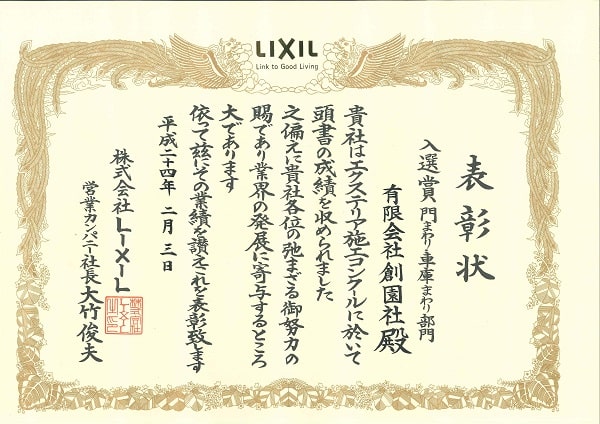 LIXIL
Link to Good Living
表彰状
入選賞 門まわり・車庫まわり部門
有限会社 創園社 殿
貴社はエクステリア施工コンクールに於いて
頭書の成績を収められました
之偏えに貴社各位の弛まざる御努力の
賜であり業界の発展に寄与するところ
大であります
依って玆にその業績を讃えこれを表彰致します
平成二十四年 二月 三日
株式会社 LIXIL
営業カンパニー社長 大竹俊夫